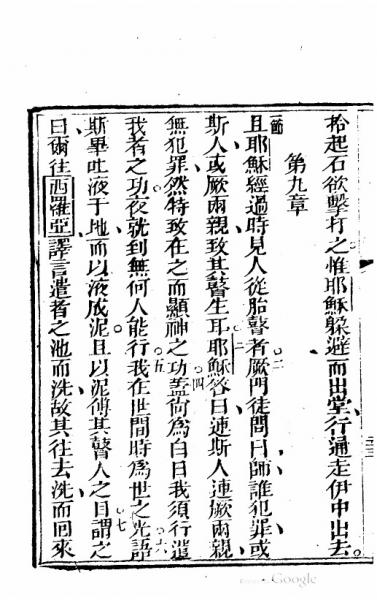 拾起石欲擊打之惟耶穌躲避而出堂行通走伊中出去
第九章
一節且耶穌經過時見人從胎瞽者二厥門徒問曰師誰犯罪或
斯人或厥兩親致其瞽生耳三耶穌答曰連斯人連厥兩親
無犯罪然特致在之而顯神之功四蓋尚為白日我須行遣
我者之功夜就到無何人能行五我在世間時為世之光六語
斯畢吐液于地而以液成泥且以泥傅其瞽人之目七謂之
曰爾往西羅亞譯言遣者之池而洗故其往去洗而回來
Google